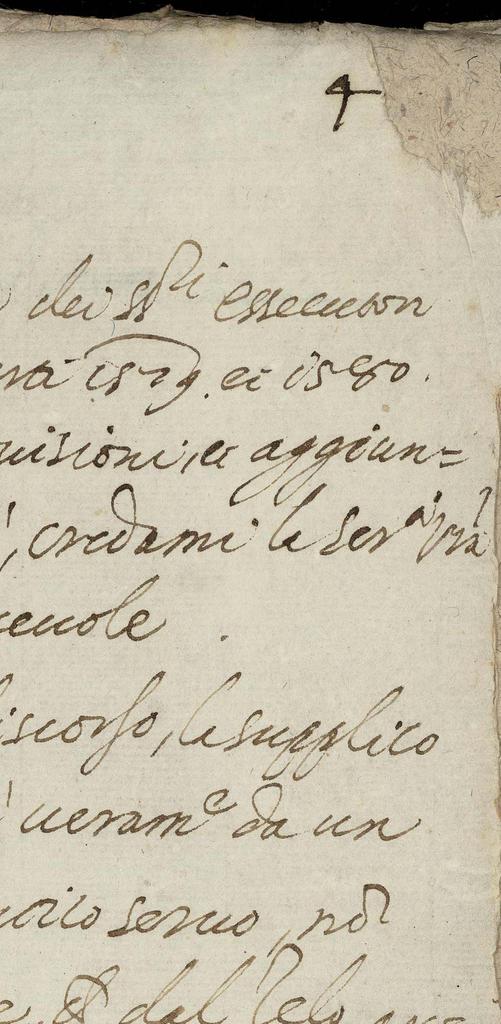 4
dei ss.ri essecutori
1579. et 1580.
uisioni, et aggiun=
, credami la Ser.tà Vr̃a
ceuole.
iscorso, la supplico
ueram.e da un
seruo, nõ
e, et dal zelo